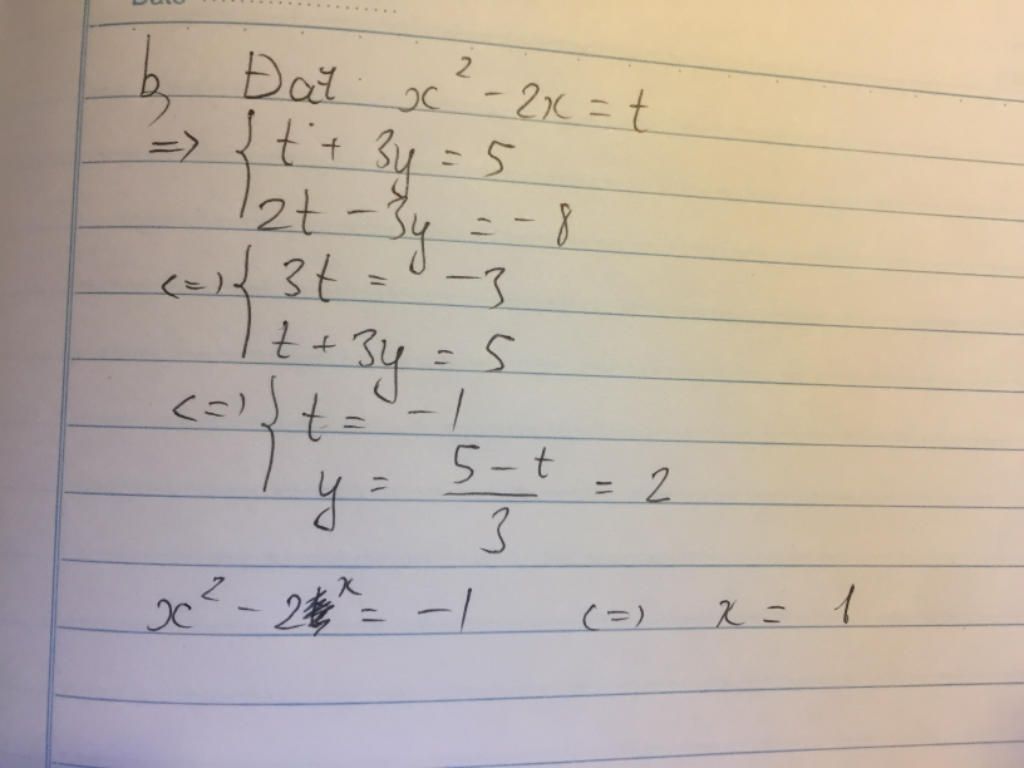 Date
b, Đặt x² - 2x = t
=> { t + 3y = 5
2t - 3y = - 8
<=> { 3t = -3
t + 3y = 5
<=> { t = -1
y = (5 - t)/3 = 2
x² - 2x = -1 <=> x = 1